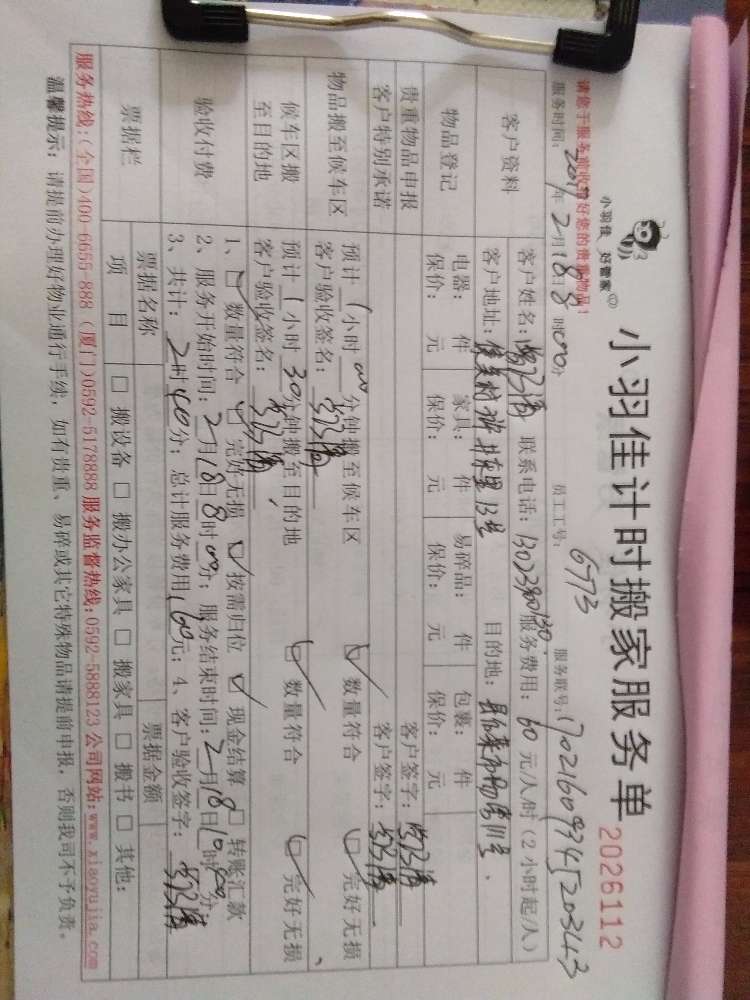 小羽佳 好管家
小羽佳计时搬家服务单 2026112
请您于服务前收拾好您的贵重物品！
服务时间：2017年2月18日8时00分 员工工号：6773 服务联号：
客户资料
客户姓名： 联系电话： 服务费用：60元/人/时（2小时起/人）
客户地址： 目的地：
物品登记
电器： 件 家具： 件 易碎品： 件 包裹： 件
保价： 元 保价： 元 保价： 元 保价： 元
贵重物品申报 客户签字：
客户特别承诺 客户签字：
物品搬至候车区
预计1小时00分钟搬至候车区 数量符合 完好无损
客户验收签名：
候车区搬至目的地
预计1小时30分钟搬至目的地 数量符合 完好无损
客户验收签名：
验收付费
1、数量符合 完好无损 按需归位 现金结算 转账汇款
2、服务开始时间：2月18日8时00分；服务结束时间：2月18日10时00分
3、共计：2时00分；总计服务费用 元；4、客户验收签字：
票据栏
票据名称 票据金额
项目 搬设备 搬办公家具 搬家具 搬书 其他：
服务热线:(全国)400-6655-888 (厦门)0592-5178888 服务监督热线:0592-5888123 公司网站:www.xiaoyujia.com
温馨提示：请提前办理好物业通行手续，如有贵重、易碎或其它特殊物品请提前申报，否则我司不予负责。